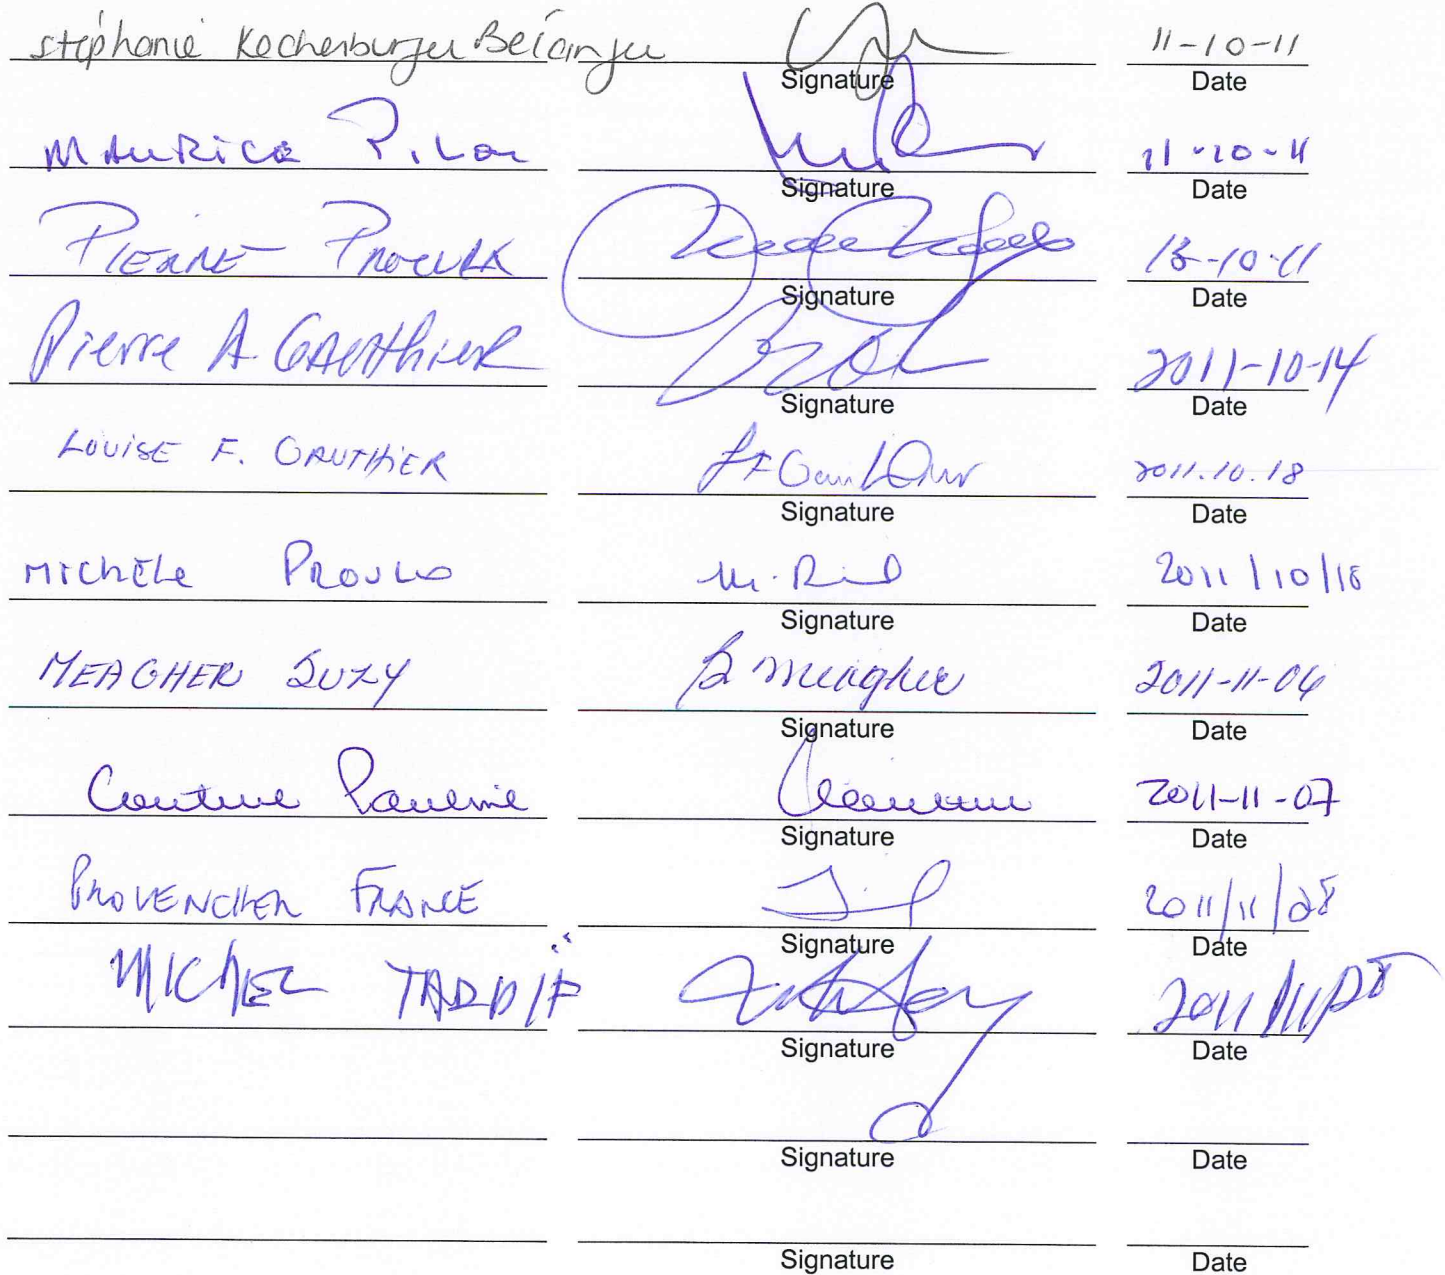 stéphanie Kochenburger Bélanger 11-10-11
Signature Date
MAURICE Pilon 11-10-11
Signature Date
PIERRE PROULX 13-10-11
Signature Date
Pierre A GAUTHIER 2011-10-14
Signature Date
LOUISE F. GAUTHIER LFGauthier 2011.10.18
Signature Date
MICHÈLE PROULX 2011/10/18
Signature Date
MEAGHER SUZY S Meagher 2011-11-06
Signature Date
Couture Pauline 2011-11-07
Signature Date
PROVENCHER FRANCE 2011/11/28
Signature Date
MICHEL TARDIF 2011
Signature Date
Signature Date
Signature Date